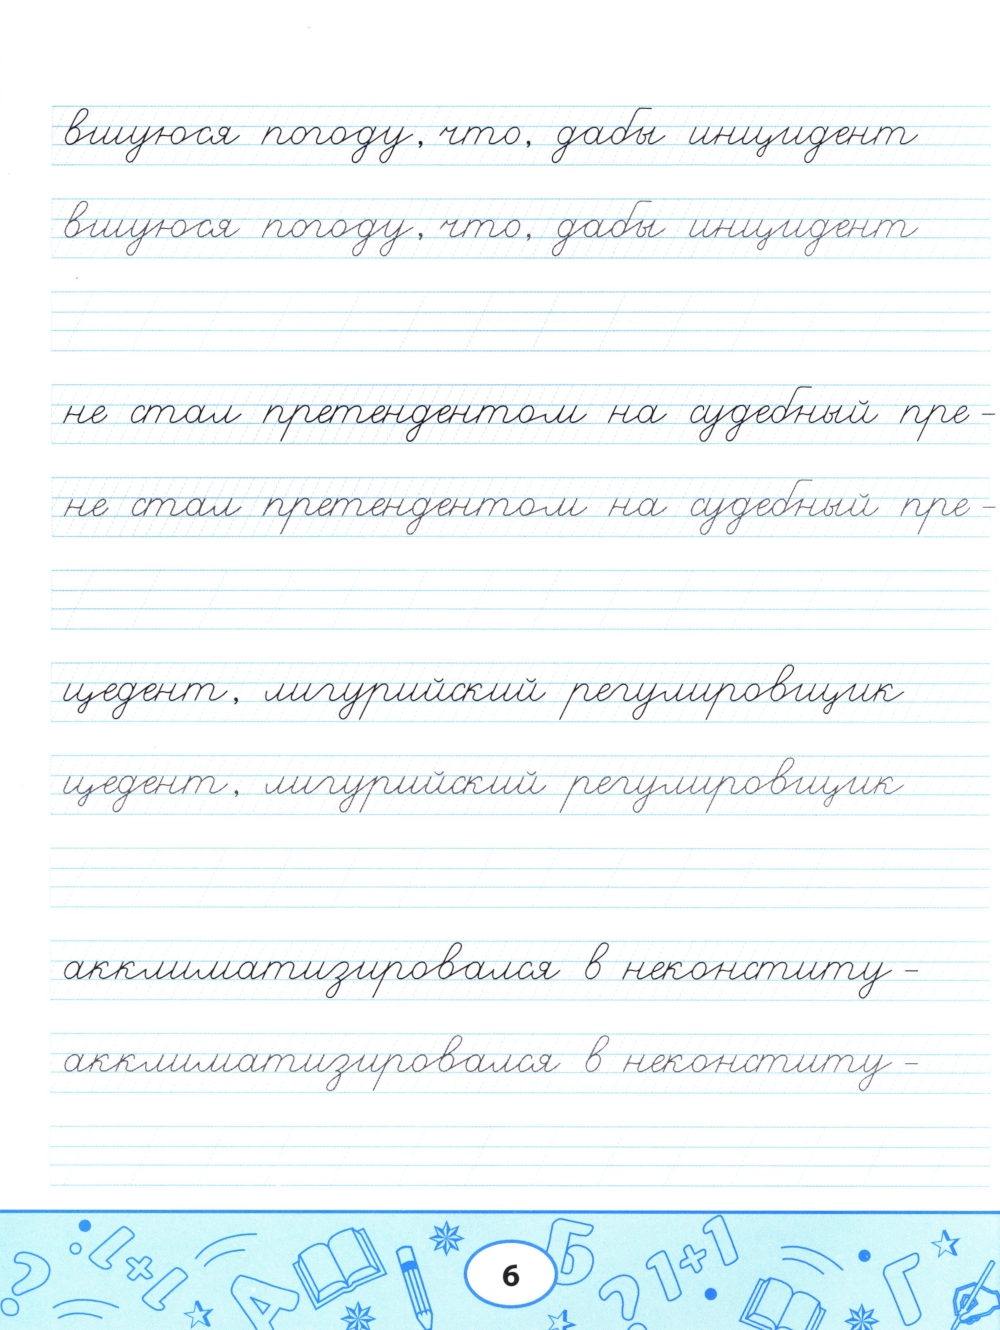 вшуюся погоду, что, дабы инцидент
вшуюся погоду, что, дабы инцидент
не стал претендентом на судебный пре-
не стал претендентом на судебный пре-
цедент, лигурийский регулировщик
цедент, лигурийский регулировщик
акклиматизировался в неконститу-
акклиматизировался в неконститу-
? 1+1 А Б ? 1+1 Г
6